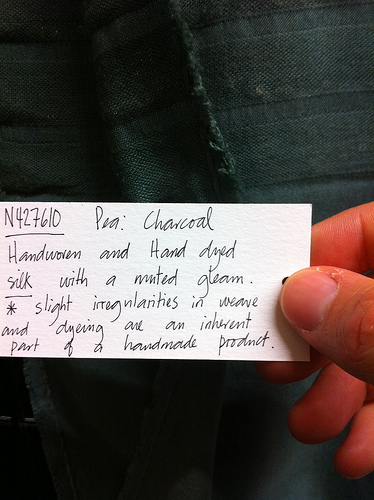 N427610 Pea: Charcoal
Handwoven and Hand dyed
silk with a muted gleam.
* slight irregularities in weave
and dyeing are an inherent
part of a handmade product.